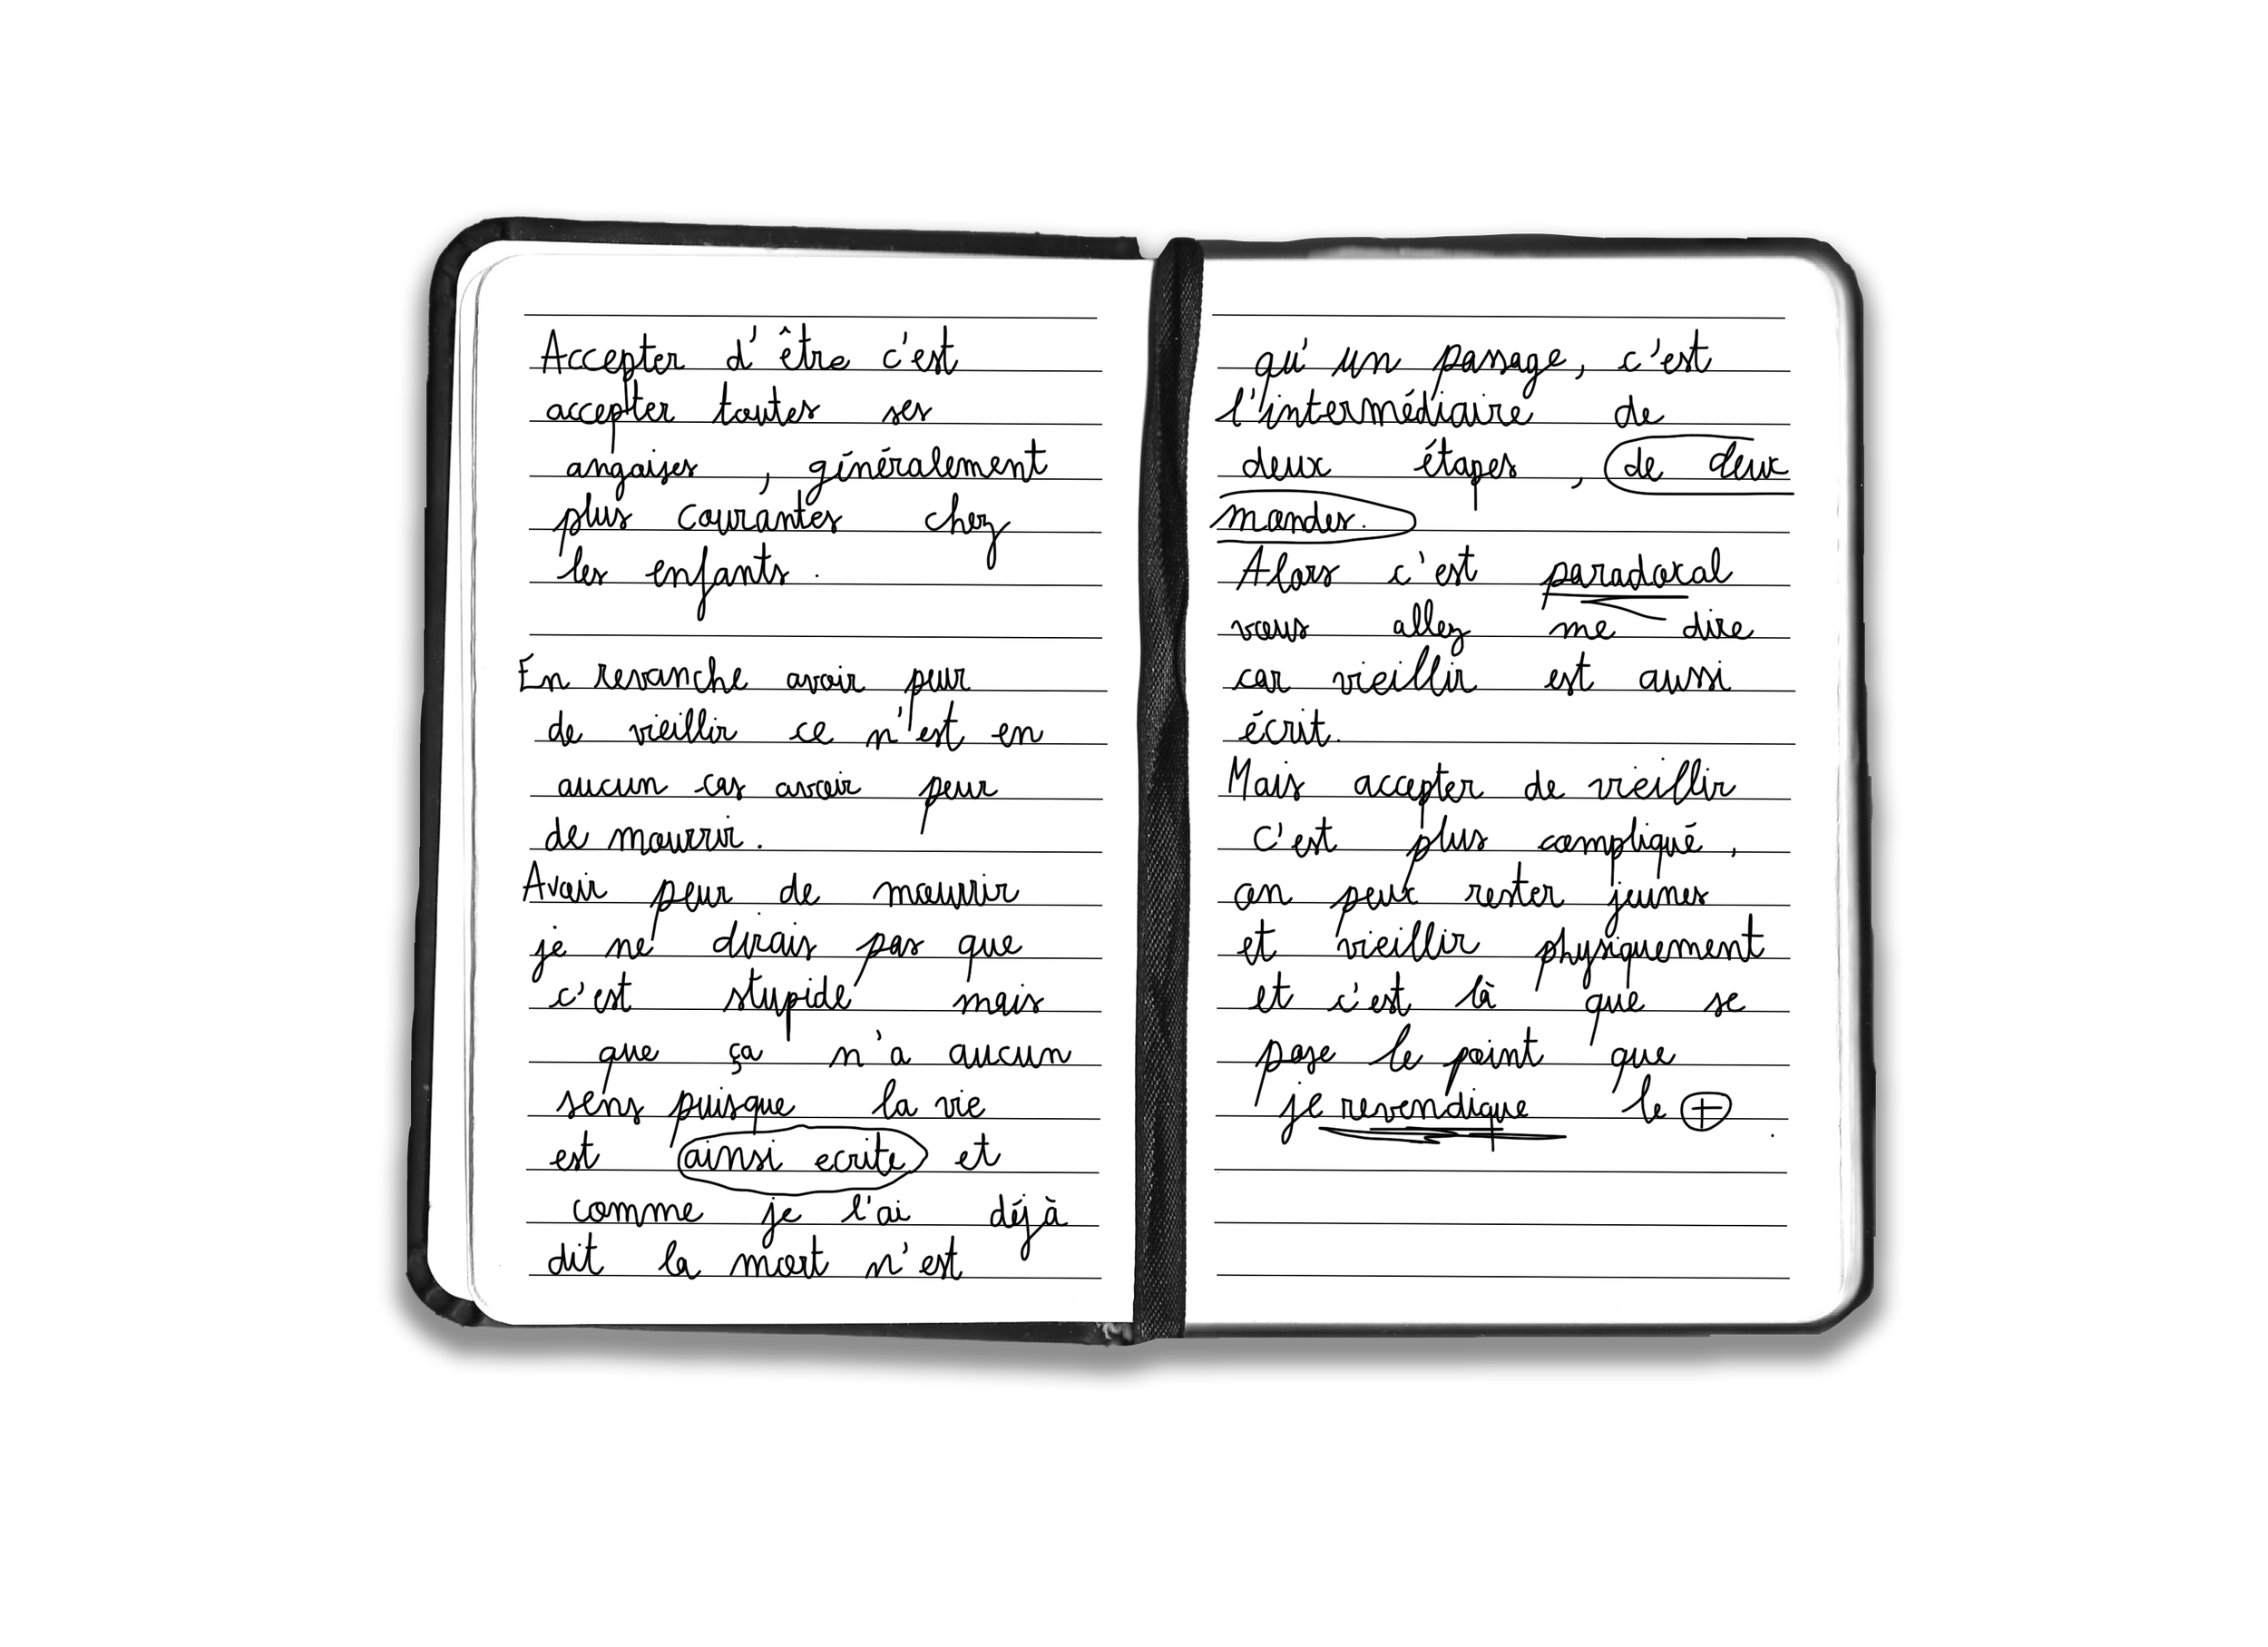 Accepter d'être c'est
accepter toutes ses
angoises , généralement
plus courantes chez
les enfants .
En revanche avoir peur
de vieillir ce n'est en
aucun cas avoir peur
de mourrir .
Avoir peur de mourrir
je ne dirais pas que
c'est stupide mais
que ça n'a aucun
sens puisque la vie
est ainsi ecrite et
comme je l'ai déjà
dit la mort n'est
qu'un passage, c'est
l'intermédiaire de
deux étapes , de deux
mondes.
Alors c'est paradoxal
vous allez me dire
car vieillir est aussi
écrit.
Mais accepter de vieillir
c'est plus compliqué ,
on peux rester jeunes
et vieillir physiquement
et c'est là que se
pose le point que
je revendique le + .